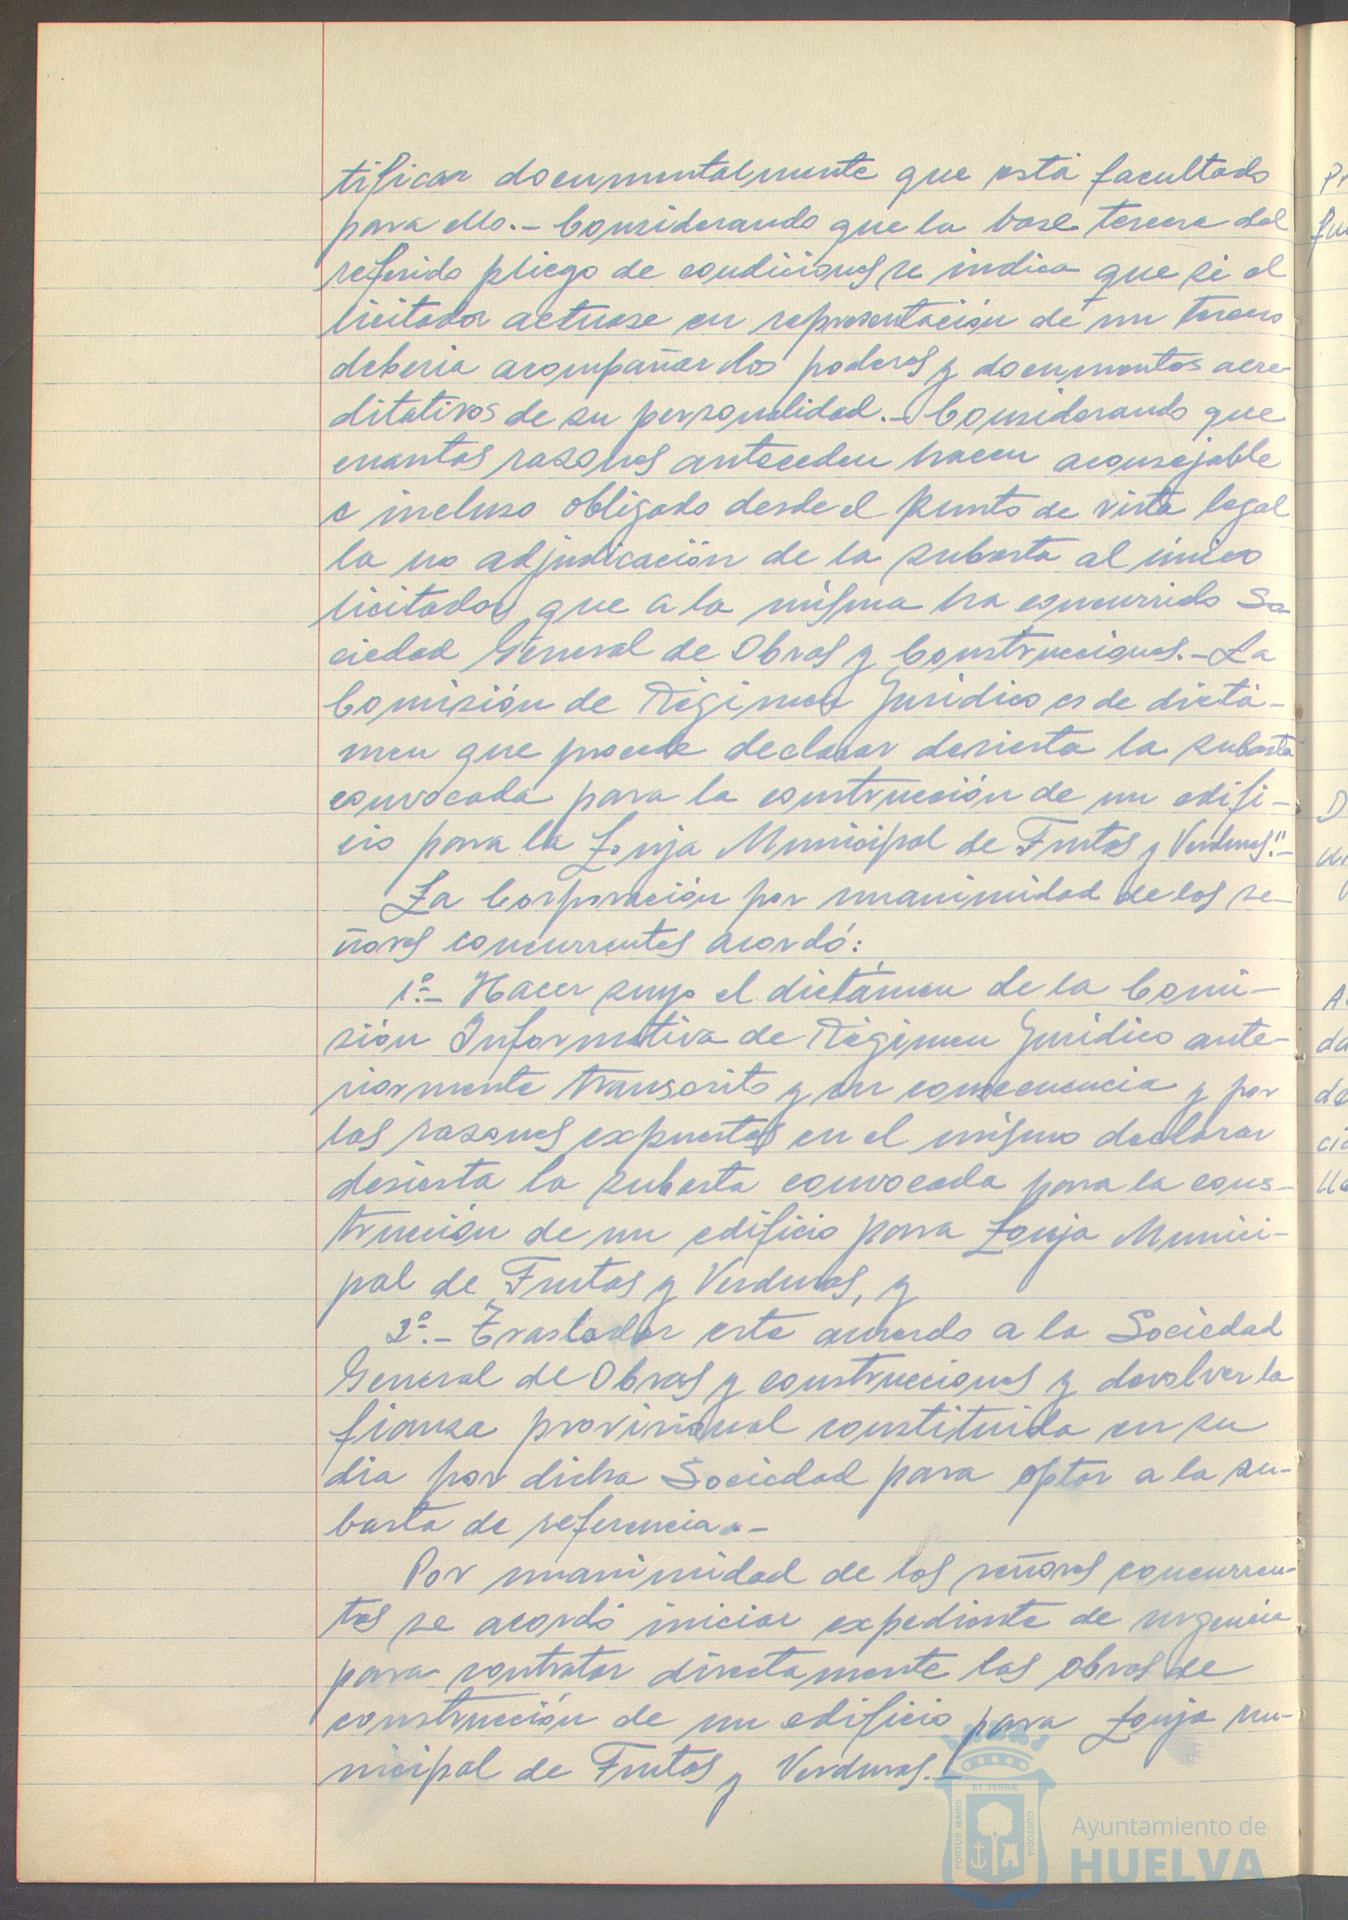 tificar documentalmente que está facultado
para ello.- Considerando que la base tercera del
referido pliego de condiciones se indica que si el
licitador actuase en representación de un tercero
deberia acompañar los poderes y documentos acre-
ditativos de su personalidad.- Considerando que
cuantas razones anteceden hacen aconsejable
e incluso obligado desde el punto de vista legal
la no adjudicación de la subasta al único
licitador que a la misma ha concurrido So-
ciedad General de Obras y Construcciones.- La
Comisión de Régimen Jurídico es de dictá-
men que procede declarar desierta la subasta
convocada para la construcción de un edifi-
cio para la Lonja Municipal de Frutas y Verduras".-
La Corporación por unanimidad de los se-
ñores concurrentes acordó:
1º.- Hacer suyo el dictámen de la Comi-
sión Informativa de Régimen Jurídico ante-
riormente transcrito y en consecuencia y por
las razones expuestas en el mismo declarar
desierta la subasta convocada para la cons-
trucción de un edificio para Lonja Munici-
pal de Frutas y Verduras, y
2º.- Trasladar este acuerdo a la Sociedad
General de Obras y construcciones y devolver la
fianza provisional constituida en su
dia por dicha Sociedad para optar a la su-
basta de referencia.-
Por unanimidad de los señores concurren-
tes se acordó iniciar expediente de urgencia
para contratar directamente las obras de
construcción de un edificio para Lonja mu-
nicipal de Frutas y Verduras.-
PORTUS MARIS ET TERRÆ CUSTODIA
Ayuntamiento de
HUELVA